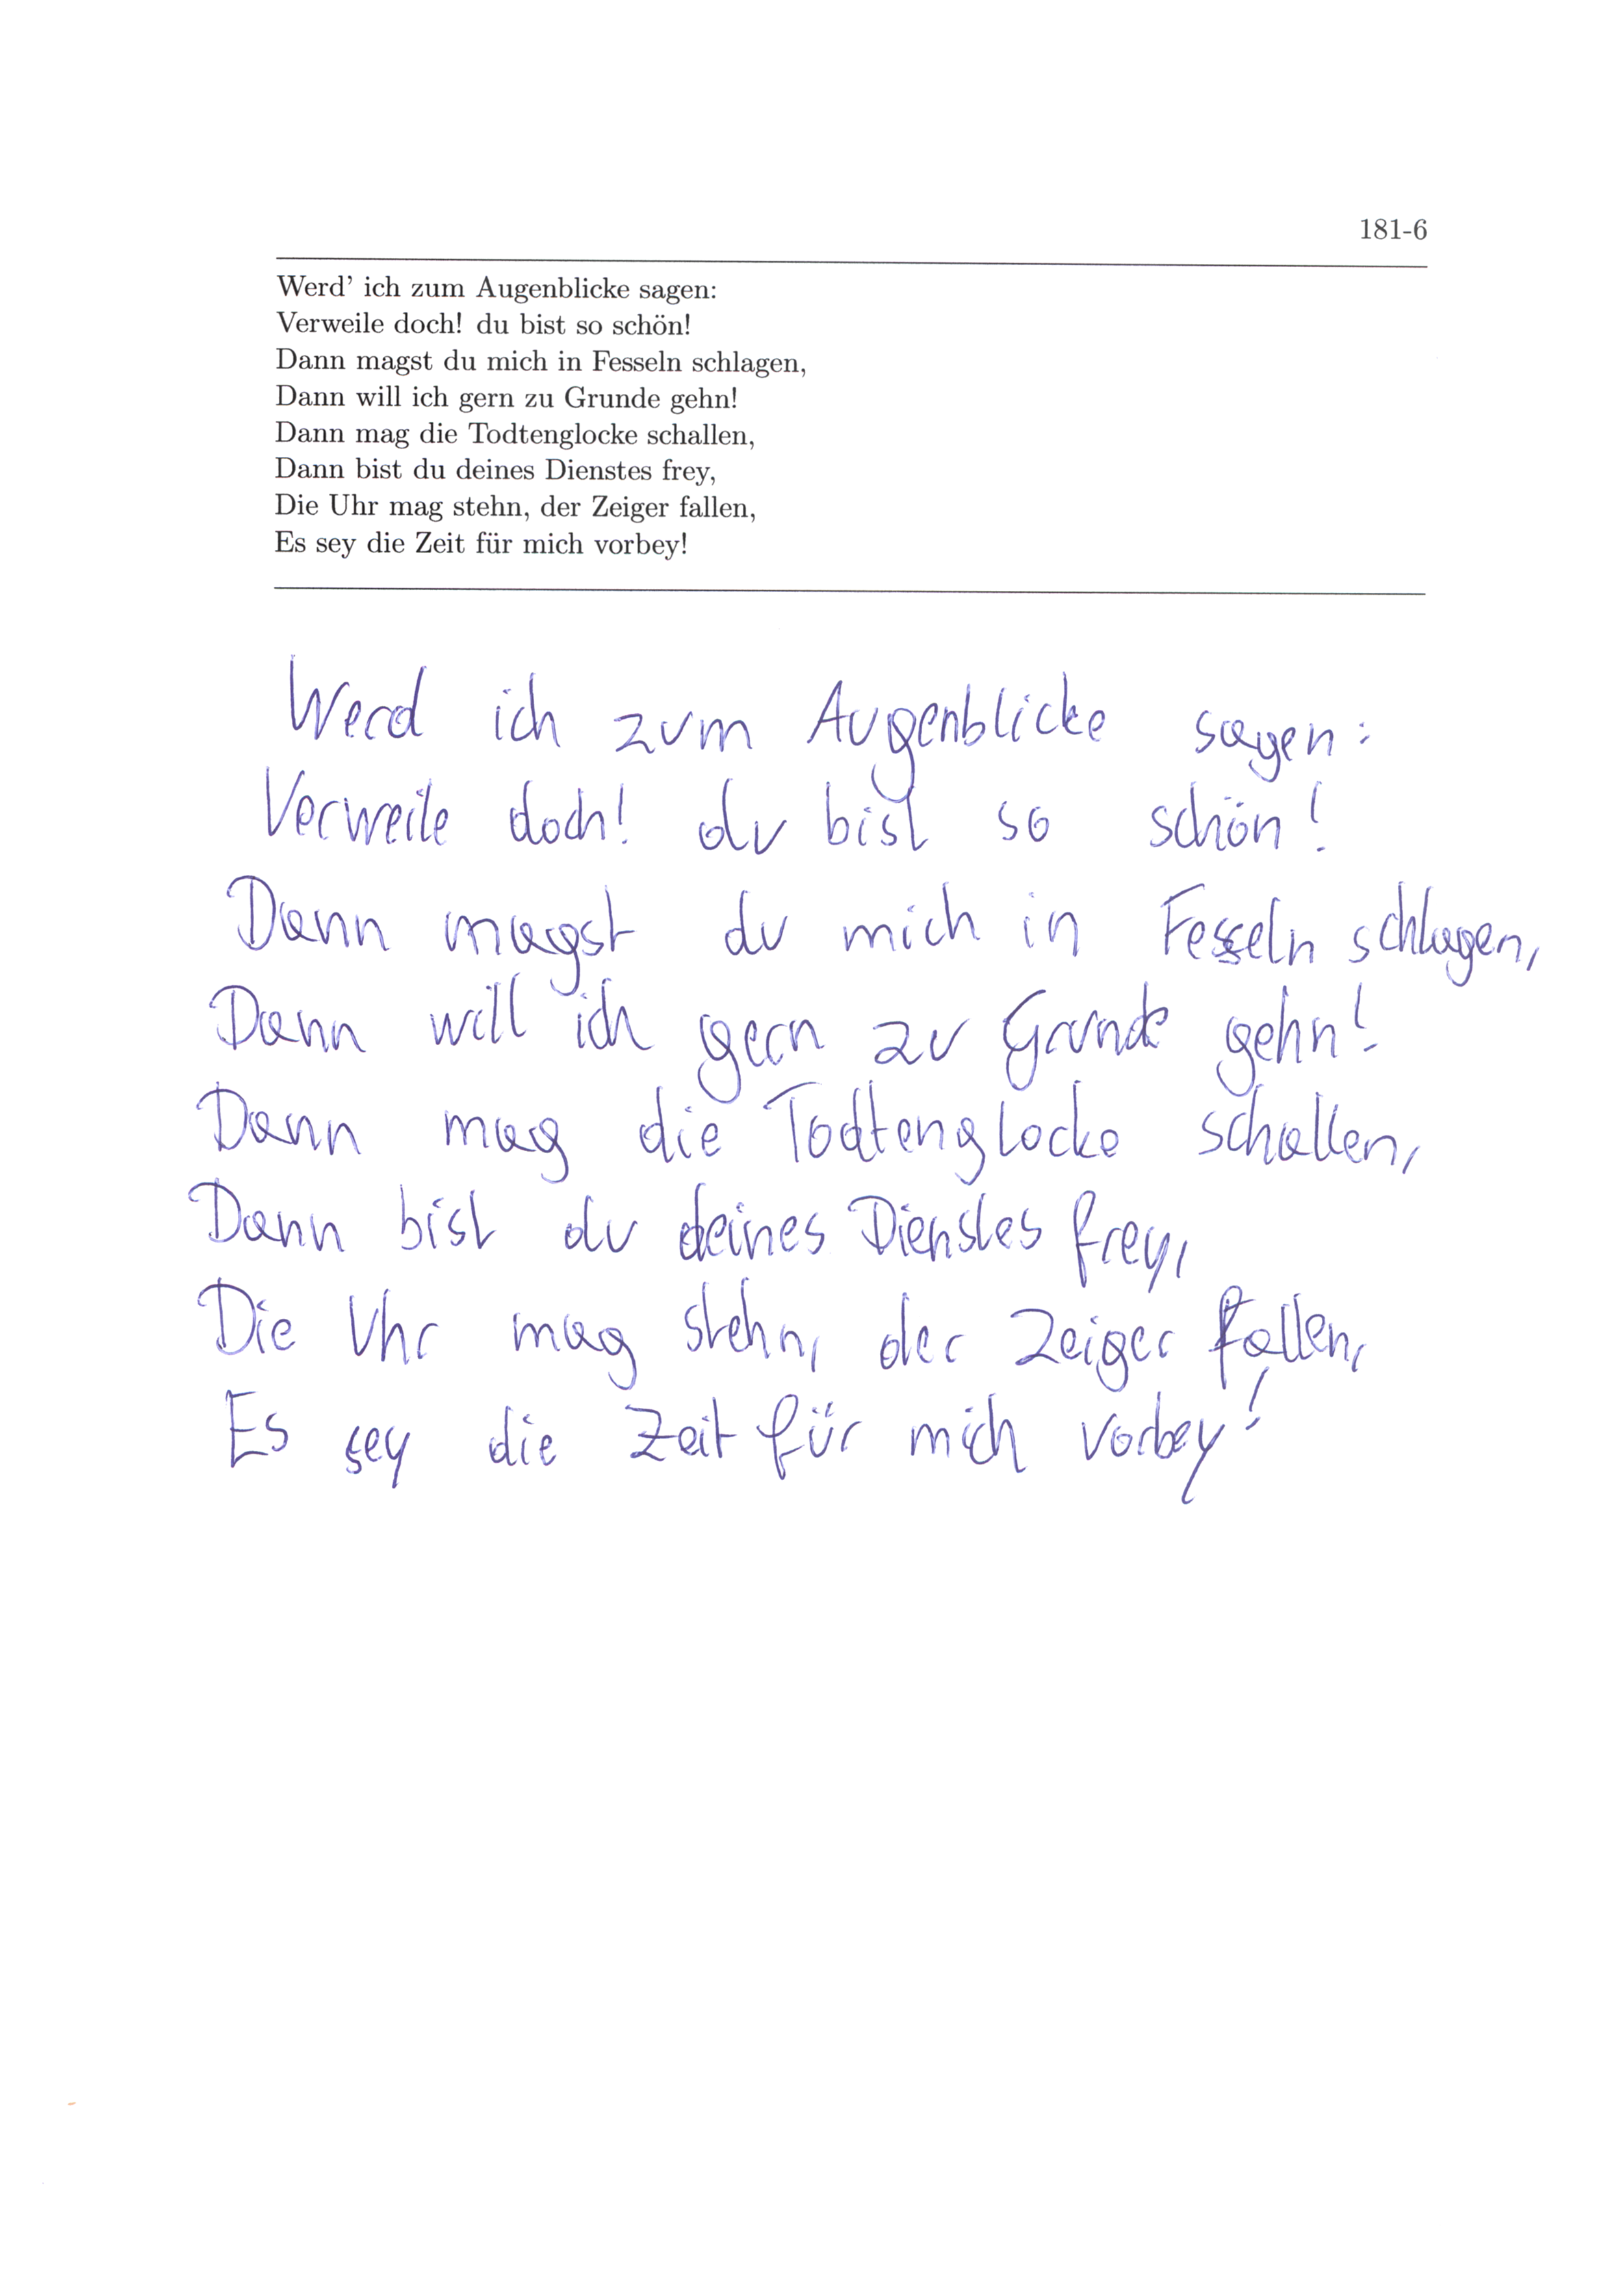 181-6
Werd' ich zum Augenblicke sagen:
Verweile doch! du bist so schön!
Dann magst du mich in Fesseln schlagen,
Dann will ich gern zu Grunde gehn!
Dann mag die Todtenglocke schallen,
Dann bist du deines Dienstes frey,
Die Uhr mag stehn, der Zeiger fallen,
Es sey die Zeit für mich vorbey!
Werd ich zum Augenblicke sagen:
Verweile doch! du bist so schön!
Dann magst du mich in Fesseln schlagen,
Dann will ich gern zu Grunde gehn!
Dann mag die Todtenglocke schallen,
Dann bist du deines Dienstes frey,
Die Uhr mag stehn, der Zeiger fallen,
Es sey die Zeit für mich vorbey!